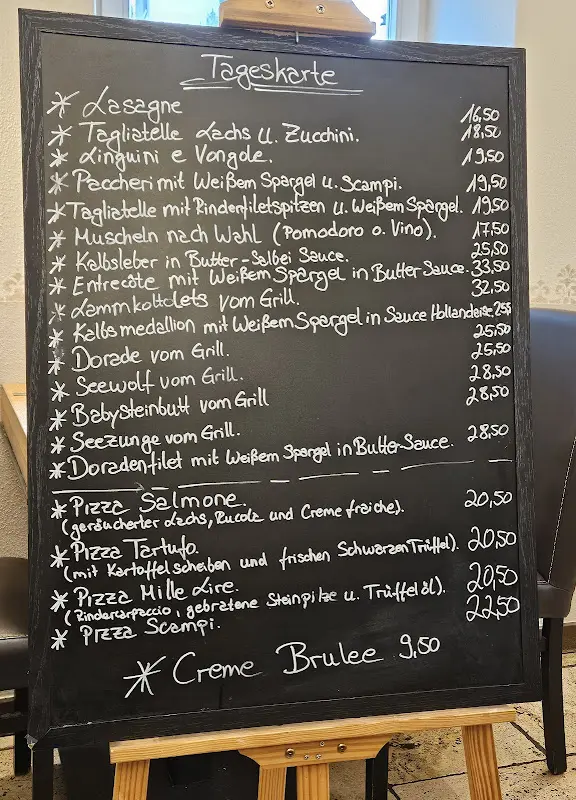 Tageskarte
* Lasagne 16,50
* Tagliatelle Lachs u. Zucchini. 18,50
* Linguini e Vongole. 19,50
* Paccheri mit Weißem Spargel u. Scampi. 19,50
* Tagliatelle mit Rinderfiletspitzen u. Weißem Spargel. 19,50
* Muscheln nach Wahl (Pomodoro o. Vino). 17,50
* Kalbsleber in Butter-Salbei Sauce. 25,50
* Entrecôte mit Weißem Spargel in Butter Sauce. 33,50
* Lammkottolets vom Grill. 32,50
* Kalbsmedallion mit Weißem Spargel in Sauce Hollandaise 25,5
* Dorade vom Grill. 25,50
* Seewolf vom Grill. 25,50
* Babysteinbutt vom Grill 28,50
* Seezunge vom Grill. 28,50
* Doradenfilet mit Weißem Spargel in Butter-Sauce. 28,50
* Pizza Salmone. 20,50
(geräucherter Lachs, Rucola und Creme fraiche).
* Pizza Tartufo. 20,50
(mit Kartoffelscheiben und frischen Schwarzen Trüffel).
* Pizza Mille Lire. 20,50
(Rindercarpaccio, gebratene Steinpilze u. Trüffelöl).
* Pizza Scampi. 22,50
* Creme Brulee 9,50